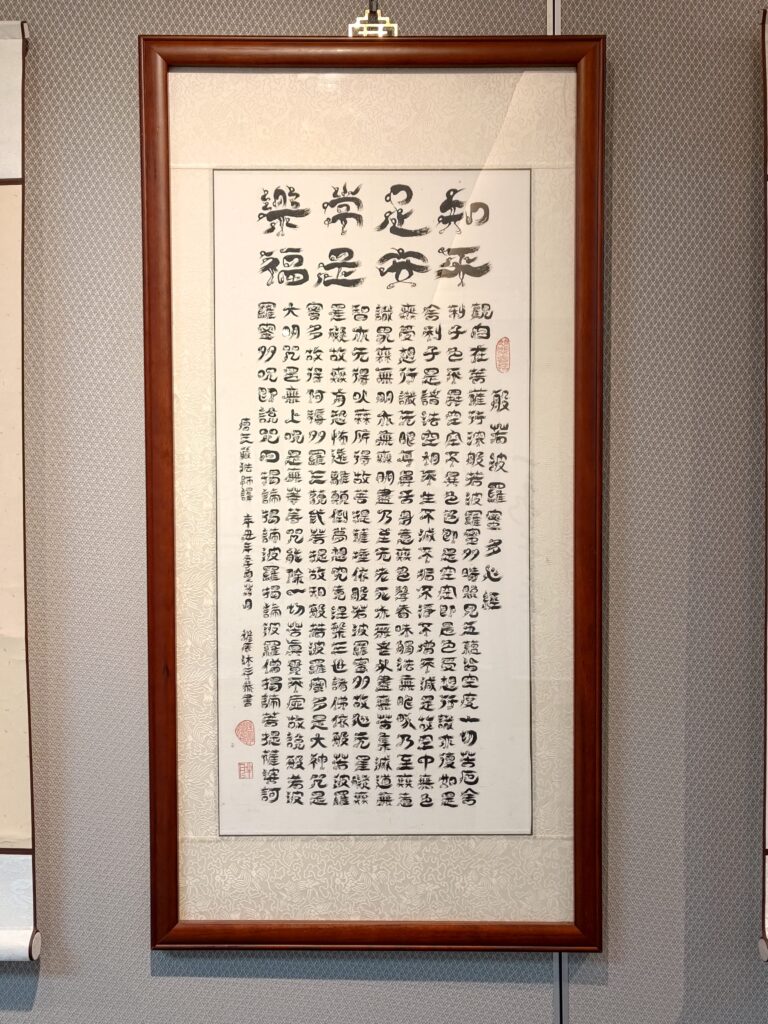 知足常樂
平安是福
般若波羅蜜多心經
觀自在菩薩行深般若波羅蜜多時照見五蘊皆空度一切苦厄舍
利子色不異空空不異色色即是空空即是色受想行識亦復如是
舍利子是諸法空相不生不滅不垢不淨不增不減是故空中無色
無受想行識无眼耳鼻舌身意無色聲香味觸法無眼界乃至無意
識界無無明亦無無明盡乃至无老死亦無老死盡無苦集滅道無
智亦无得以無所得故菩提薩埵依般若波羅蜜多故心无罣礙無
罣礙故無有恐怖遠離顛倒夢想究竟涅槃三世諸佛依般若波羅
蜜多故得阿耨多羅三藐弎菩提故知般若波羅蜜多是大神咒是
大明咒是無上呪是無等等咒能除一切苦真實不虛故說般若波
羅蜜多呪即說咒曰揭諦揭諦波羅揭諦波羅僧揭諦菩提薩婆訶
唐玄奘法師譯 辛丑年 沐手恭書